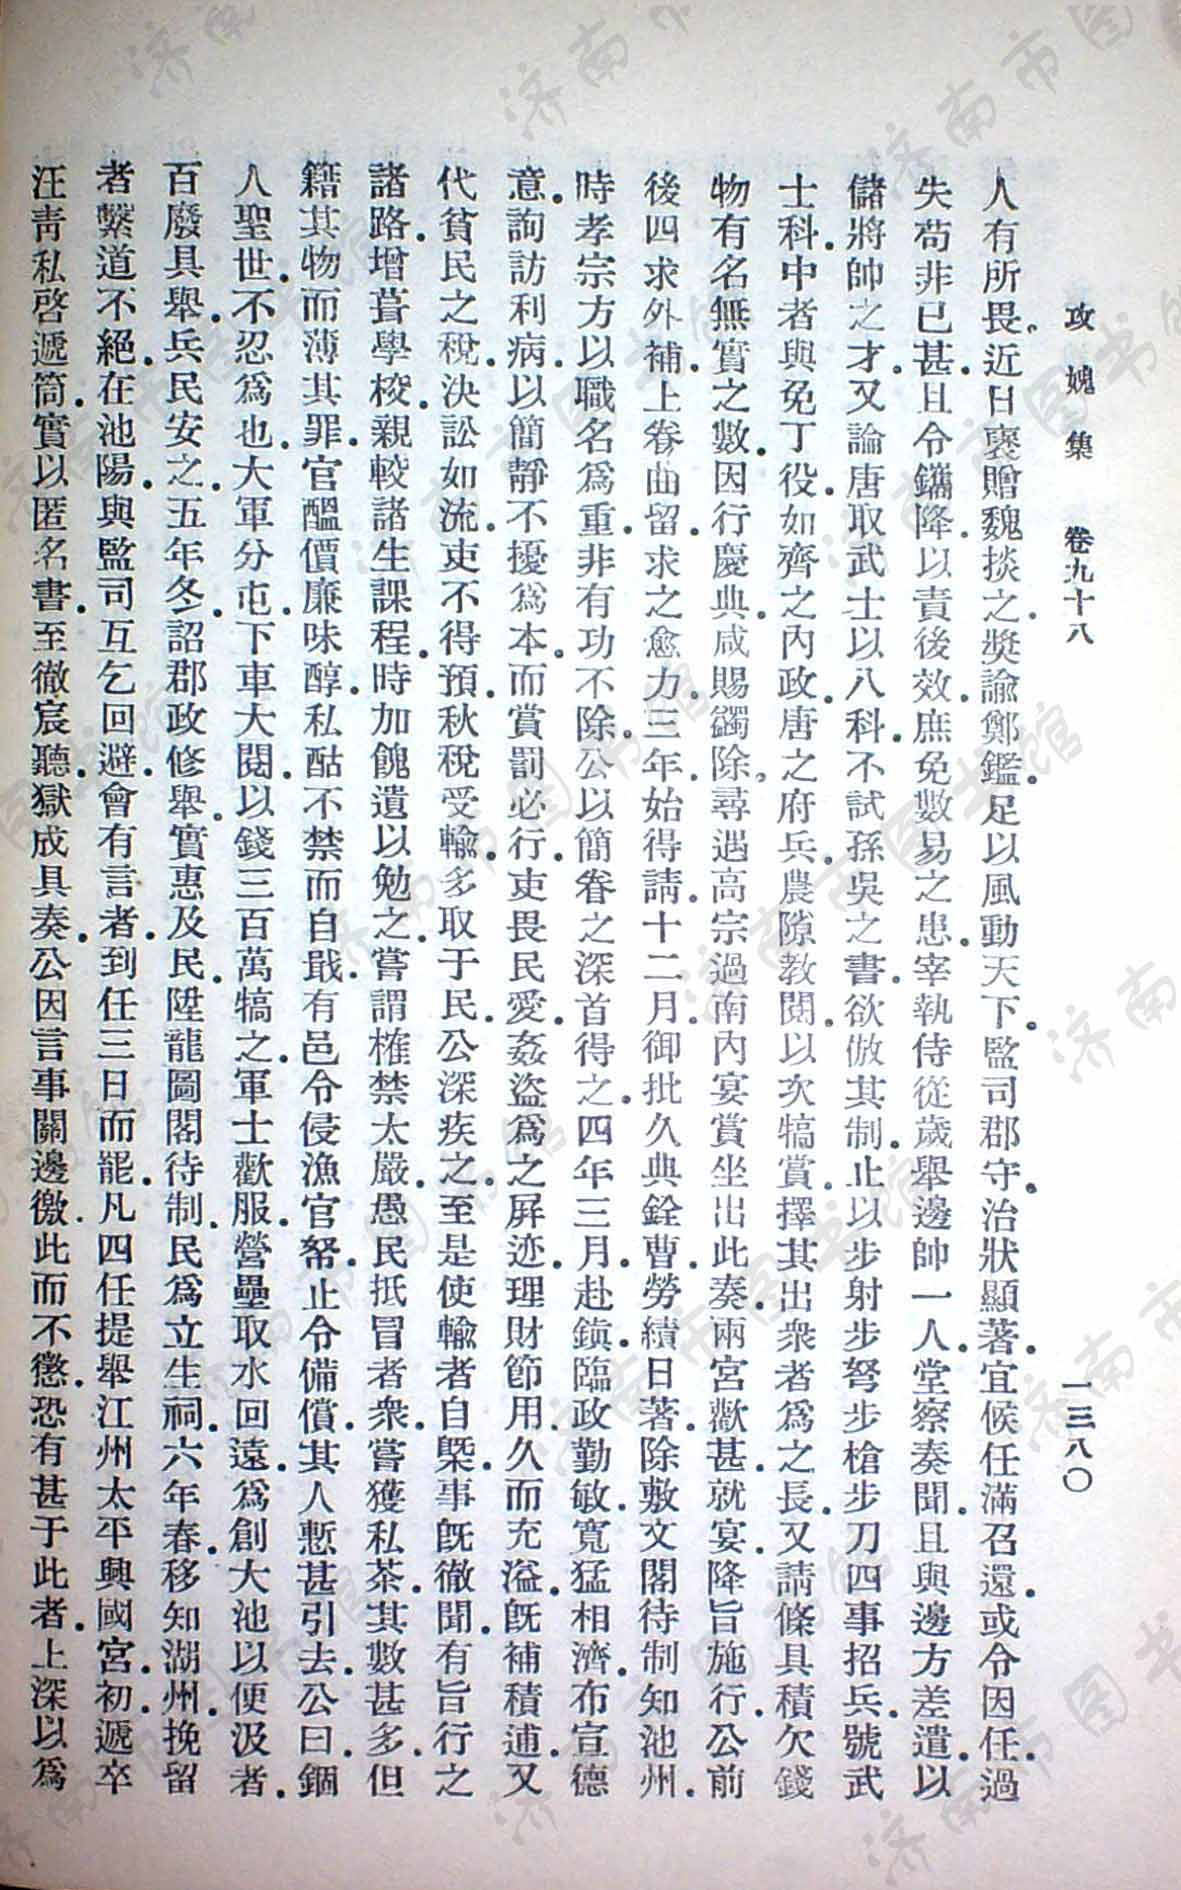 攻媿集　卷九十八　一三八〇
人有所畏。近日褒贈魏掞之。獎諭鄭鑑。足以風動天下。監司郡守。治狀顯著。宜候任滿召還。或令因任。過
失苟非已甚。且令鐫降。以責後效。庶免數易之患。宰執侍從。歲舉邊帥一人。堂察奏聞。且與邊方差遣。以
儲將帥之才。又論唐取武士以八科。不試孫吳之書。欲倣其制。止以步射步弩步槍步刀四事招兵。號武
士科。中者與免丁役。如齊之內政。唐之府兵。農隙教閱。以次犒賞。擇其出衆者爲之長。又請條具積欠錢
物有名無實之數。因行慶典。咸賜蠲除。尋遇高宗過南內宴賞。坐出此奏。兩宮歡甚。就宴降旨施行。公前
後四求外補。上眷曲留。求之愈力。三年。始得請。十二月。御批久典銓曹。勞績日著。除敷文閣待制知池州。
時孝宗方以職名爲重。非有功不除。公以簡眷之深。首得之。四年三月。赴鎮。臨政勤敏。寬猛相濟。布宣德
意。詢訪利病。以簡靜不擾爲本。而賞罰必行。吏畏民愛。姦盜爲之屏迹。理財節用。久而充溢。既補積逋。又
代貧民之稅。決訟如流。吏不得預。秋稅受輸。多取于民。公深疾之。至是使輸者自槩。事既徹聞。有旨行之
諸路。增葺學校。親較諸生課程。時加餽遺以勉之。嘗謂榷禁太嚴。愚民抵冒者衆。嘗獲私茶。其數甚多。但
籍其物而薄其罪。官醞價廉味醇。私酤不禁而自戢。有邑令侵漁官帑。止令備償。其人慙甚引去。公曰。錮
人聖世。不忍爲也。大軍分屯。下車大閱。以錢三百萬犒之。軍士歡服。營壘取水回遠。爲創大池以便汲者。
百廢具舉。兵民安之。五年冬。詔郡政修舉。實惠及民。陞龍圖閣待制。民爲立生祠。六年春。移知湖州。挽留
者繫道不絕。在池陽。與監司互乞回避。會有言者。到任三日而罷。凡四任提舉江州太平興國宮。初遞卒
汪靑私啓遞筒。實以匿名書。至徹宸聽。獄成具奏。公因言事關邊徼。此而不懲。恐有甚于此者。上深以爲